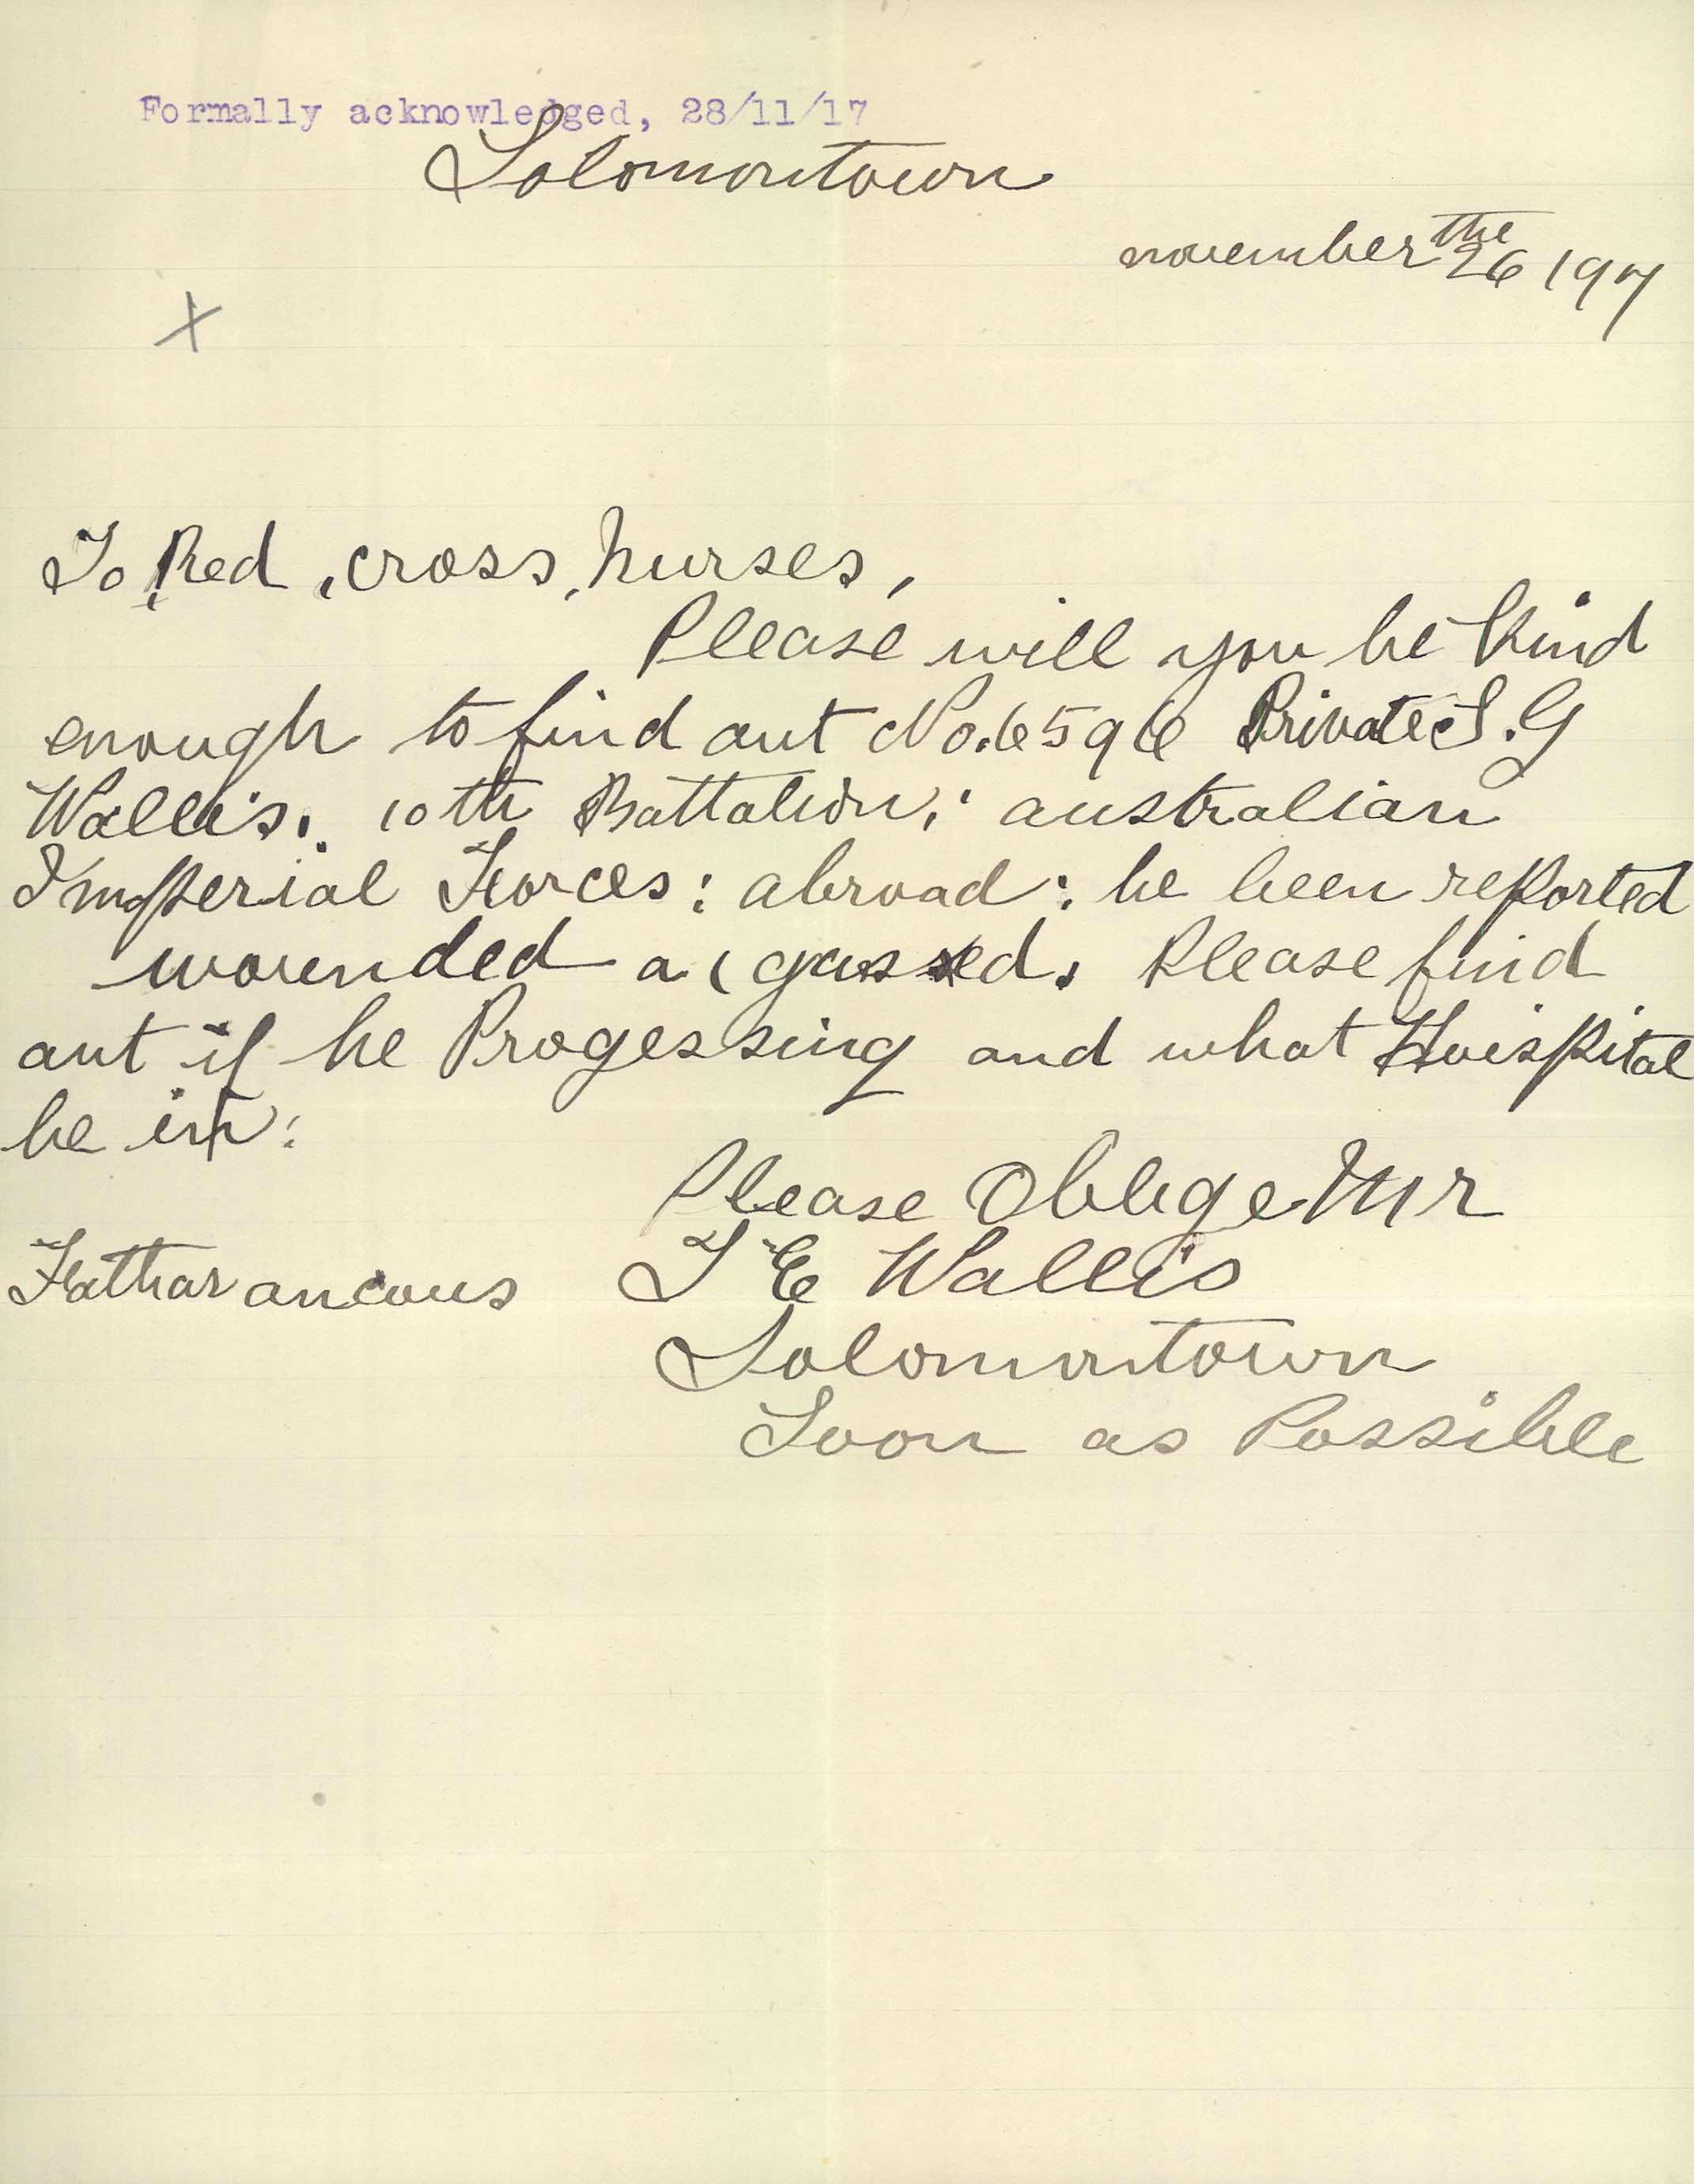 Formally acknowledged, 28/11/17
Solomontown
november the 26 1917
X
To Red, cross, nurses,
Please will you be kind
enough to find out No. 6596 Private S. G
Wallis. 10th Battalion: australian
Imperial Forces: abroad: he been reported
wounded a (gassed. Please find
out if he Progessing and what Hoispital
he in:
Please Oblige Mr
Fathar ancous T E Wallis
Solomontown
Soon as Possible